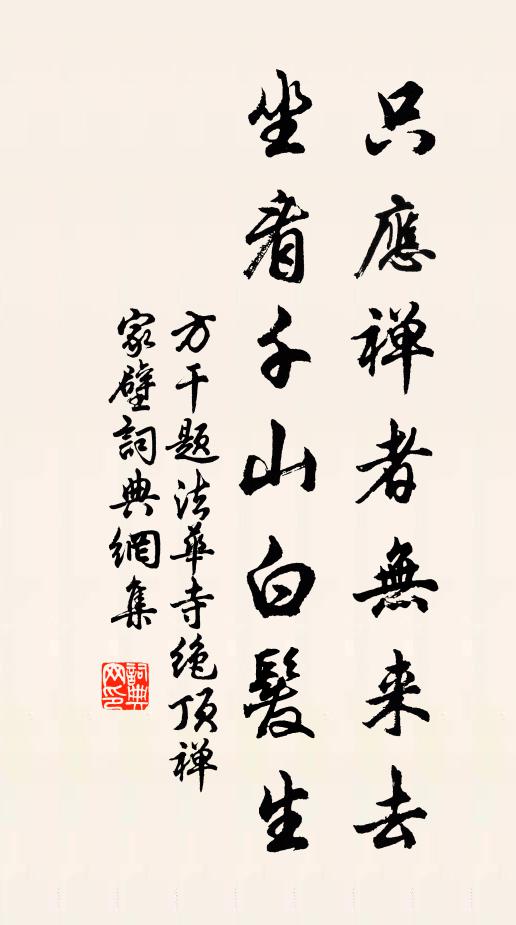 只應禅者無来去
坐看千山白髮生
方干题法華寺绝顶禅
家壁詞典網集
詞典
网印